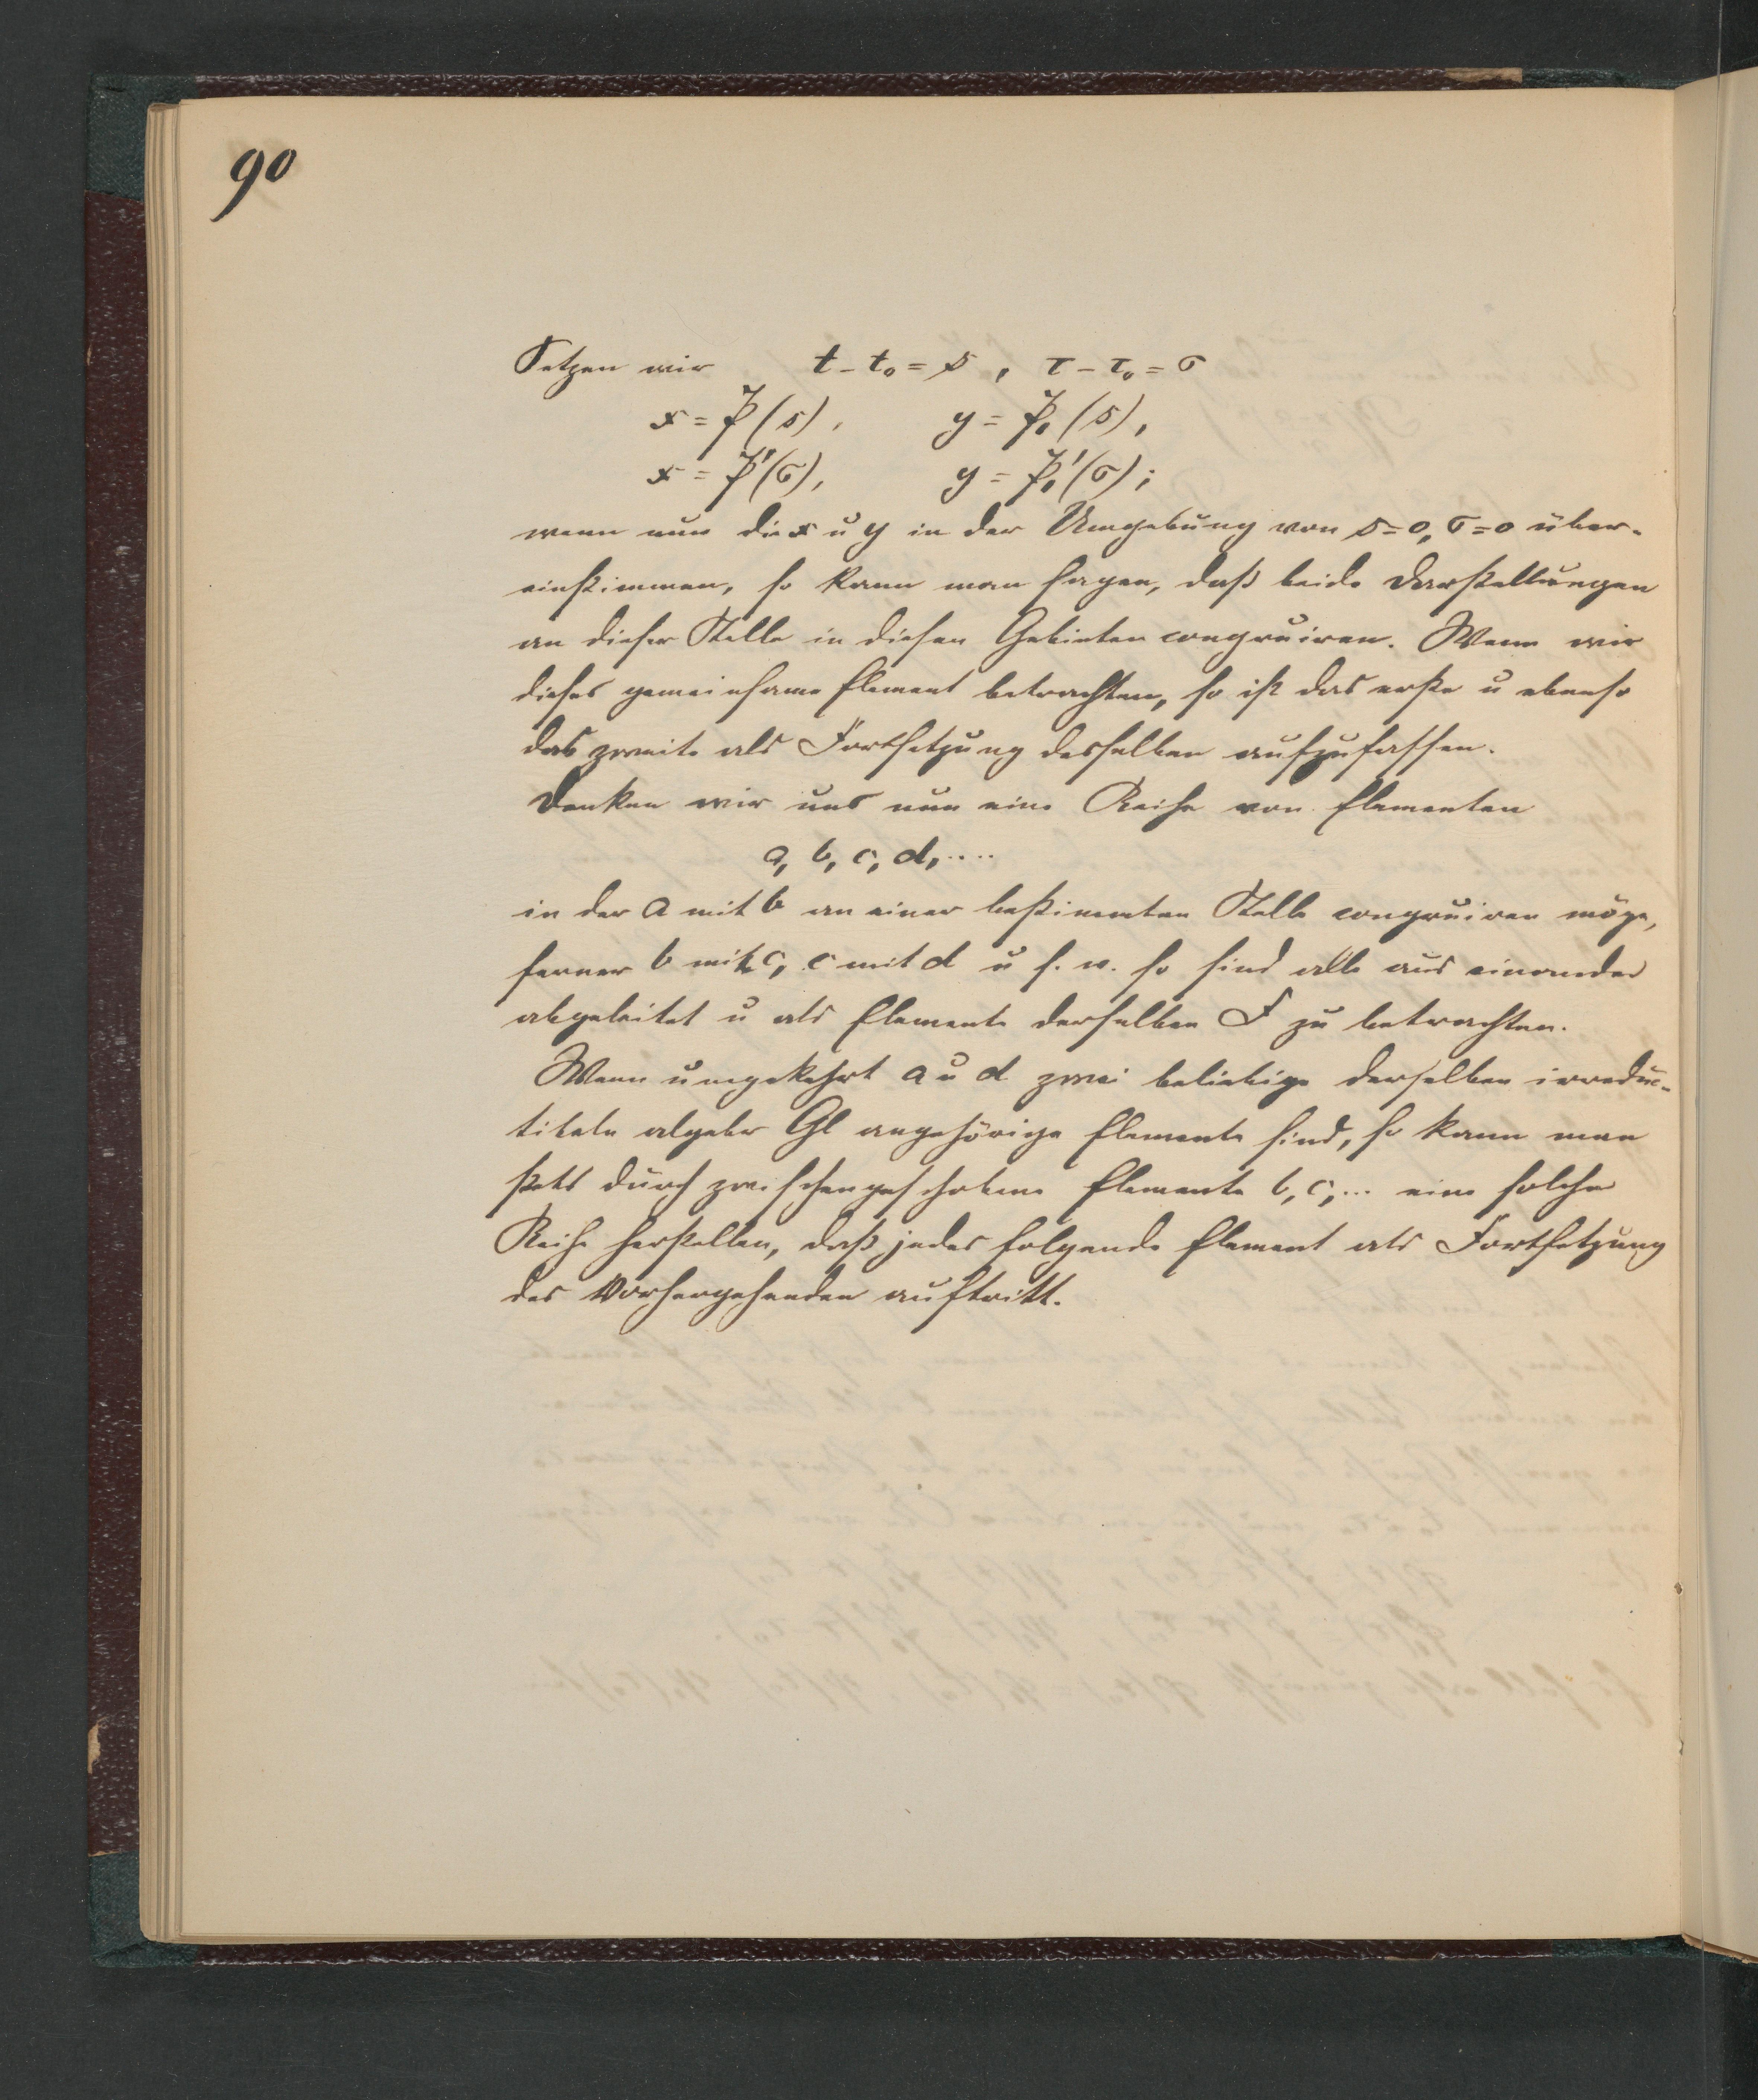 90
Setzen wir t - t₀ = s, τ - τ₀ = σ
x = 𝔓(s), y = 𝔓₁(s),
x = 𝔓'(σ), y = 𝔓₁'(σ);
wenn nun die x u y in der Umgebung von s=0, σ=0 über-
einstimmen, so kann man sagen, daß beide Darstellungen
an dieser Stelle in diesen Gebieten congruiren. Wenn wir
dieses gemeinsame Element betrachten, so ist das erste u ebenso
das zweite als Fortsetzung desselben aufzufassen.
Denken wir uns nun eine Reihe von Elementen
a, b, c, d, ....
in der a mit b an einer bestimmten Stelle congruiren möge,
ferner b mit c, c mit d u s. w. so sind alle aus einander
abgeleitet u als Elemente derselben F zu betrachten.
Wenn umgekehrt a u d zwei beliebige derselben irreduc-
tibeln algebr Gl angehörige Elemente sind, so kann man
stets durch zwischengeschobene Elemente b, c, ... eine solche
Reihe herstellen, daß jedes folgende Element als Fortsetzung
des Vorhergehenden auftritt.